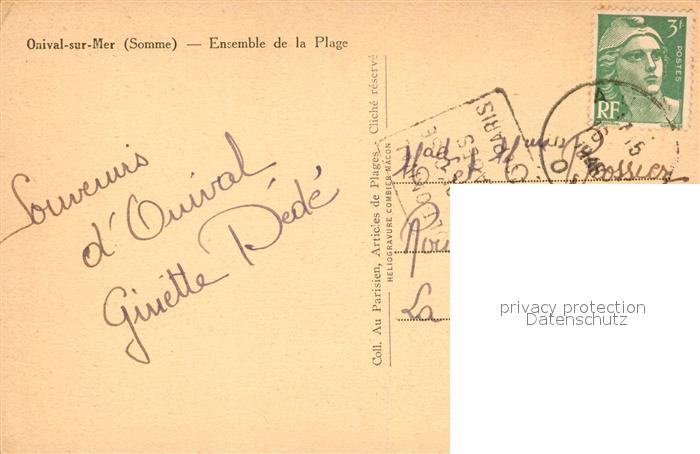 Onival-sur-Mer (Somme) — Ensemble de la Plage
Souvenirs
d'Onival
Ginette Dédé
Coll. Au Parisien, Articles de Plages - Cliché réservé
HELIOGRAVURE COMBIER MACON
3F
POSTES
RF
PARIS
La
privacy protection
Datenschutz